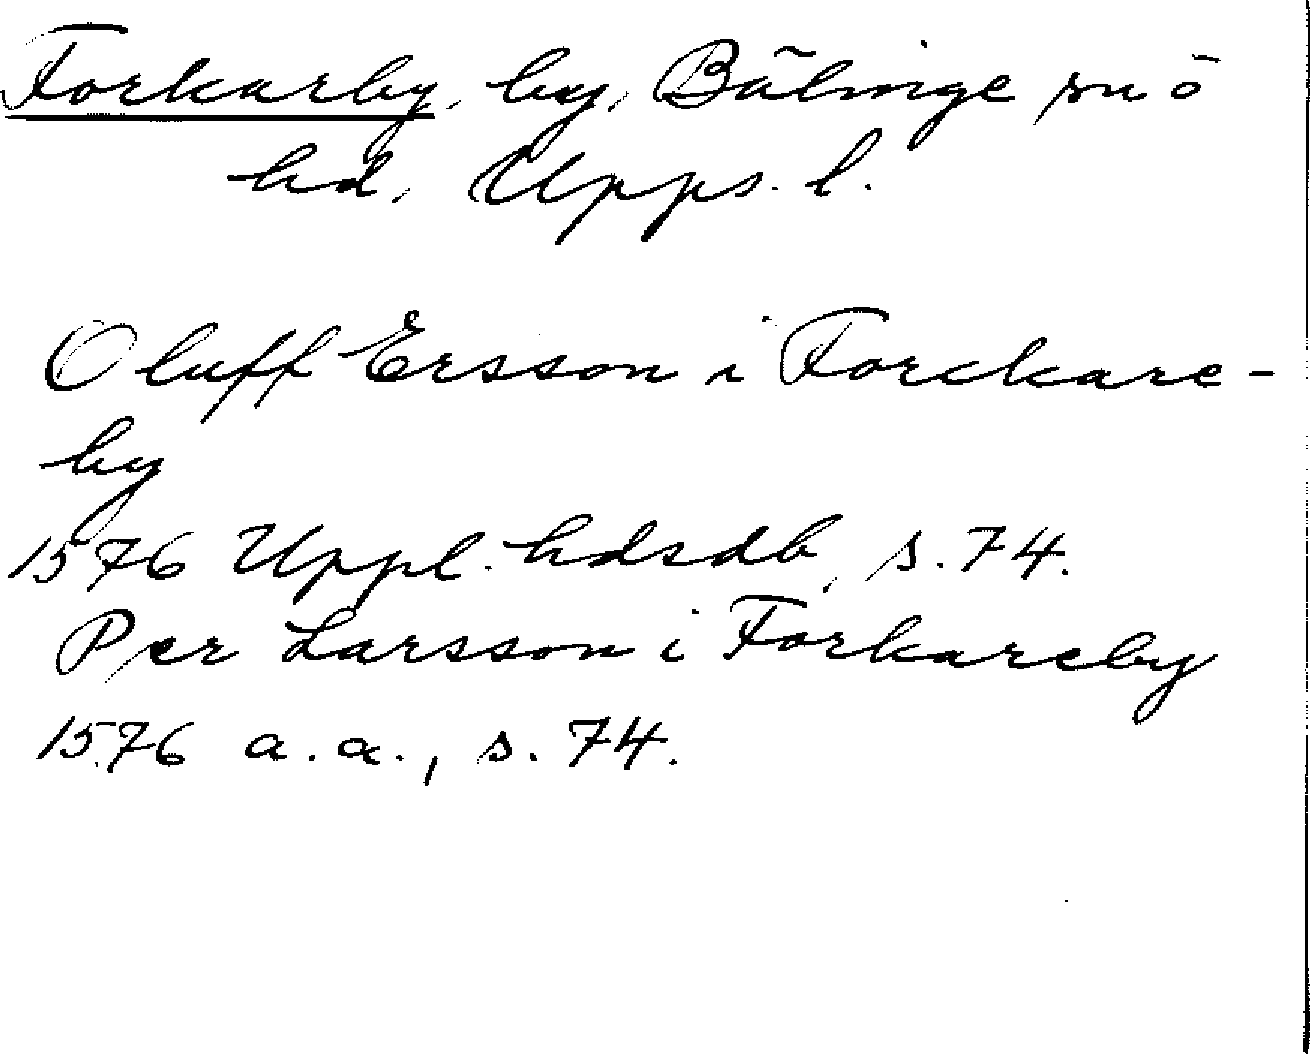 Forkarby, by, Bälinge sn ö
hd, Upps. l.
Oluff Ersson i Forckare-
by
1576 Uppl. hdsdb, s. 74.
Per Larsson i Forkareby
1576 a. a., s. 74.